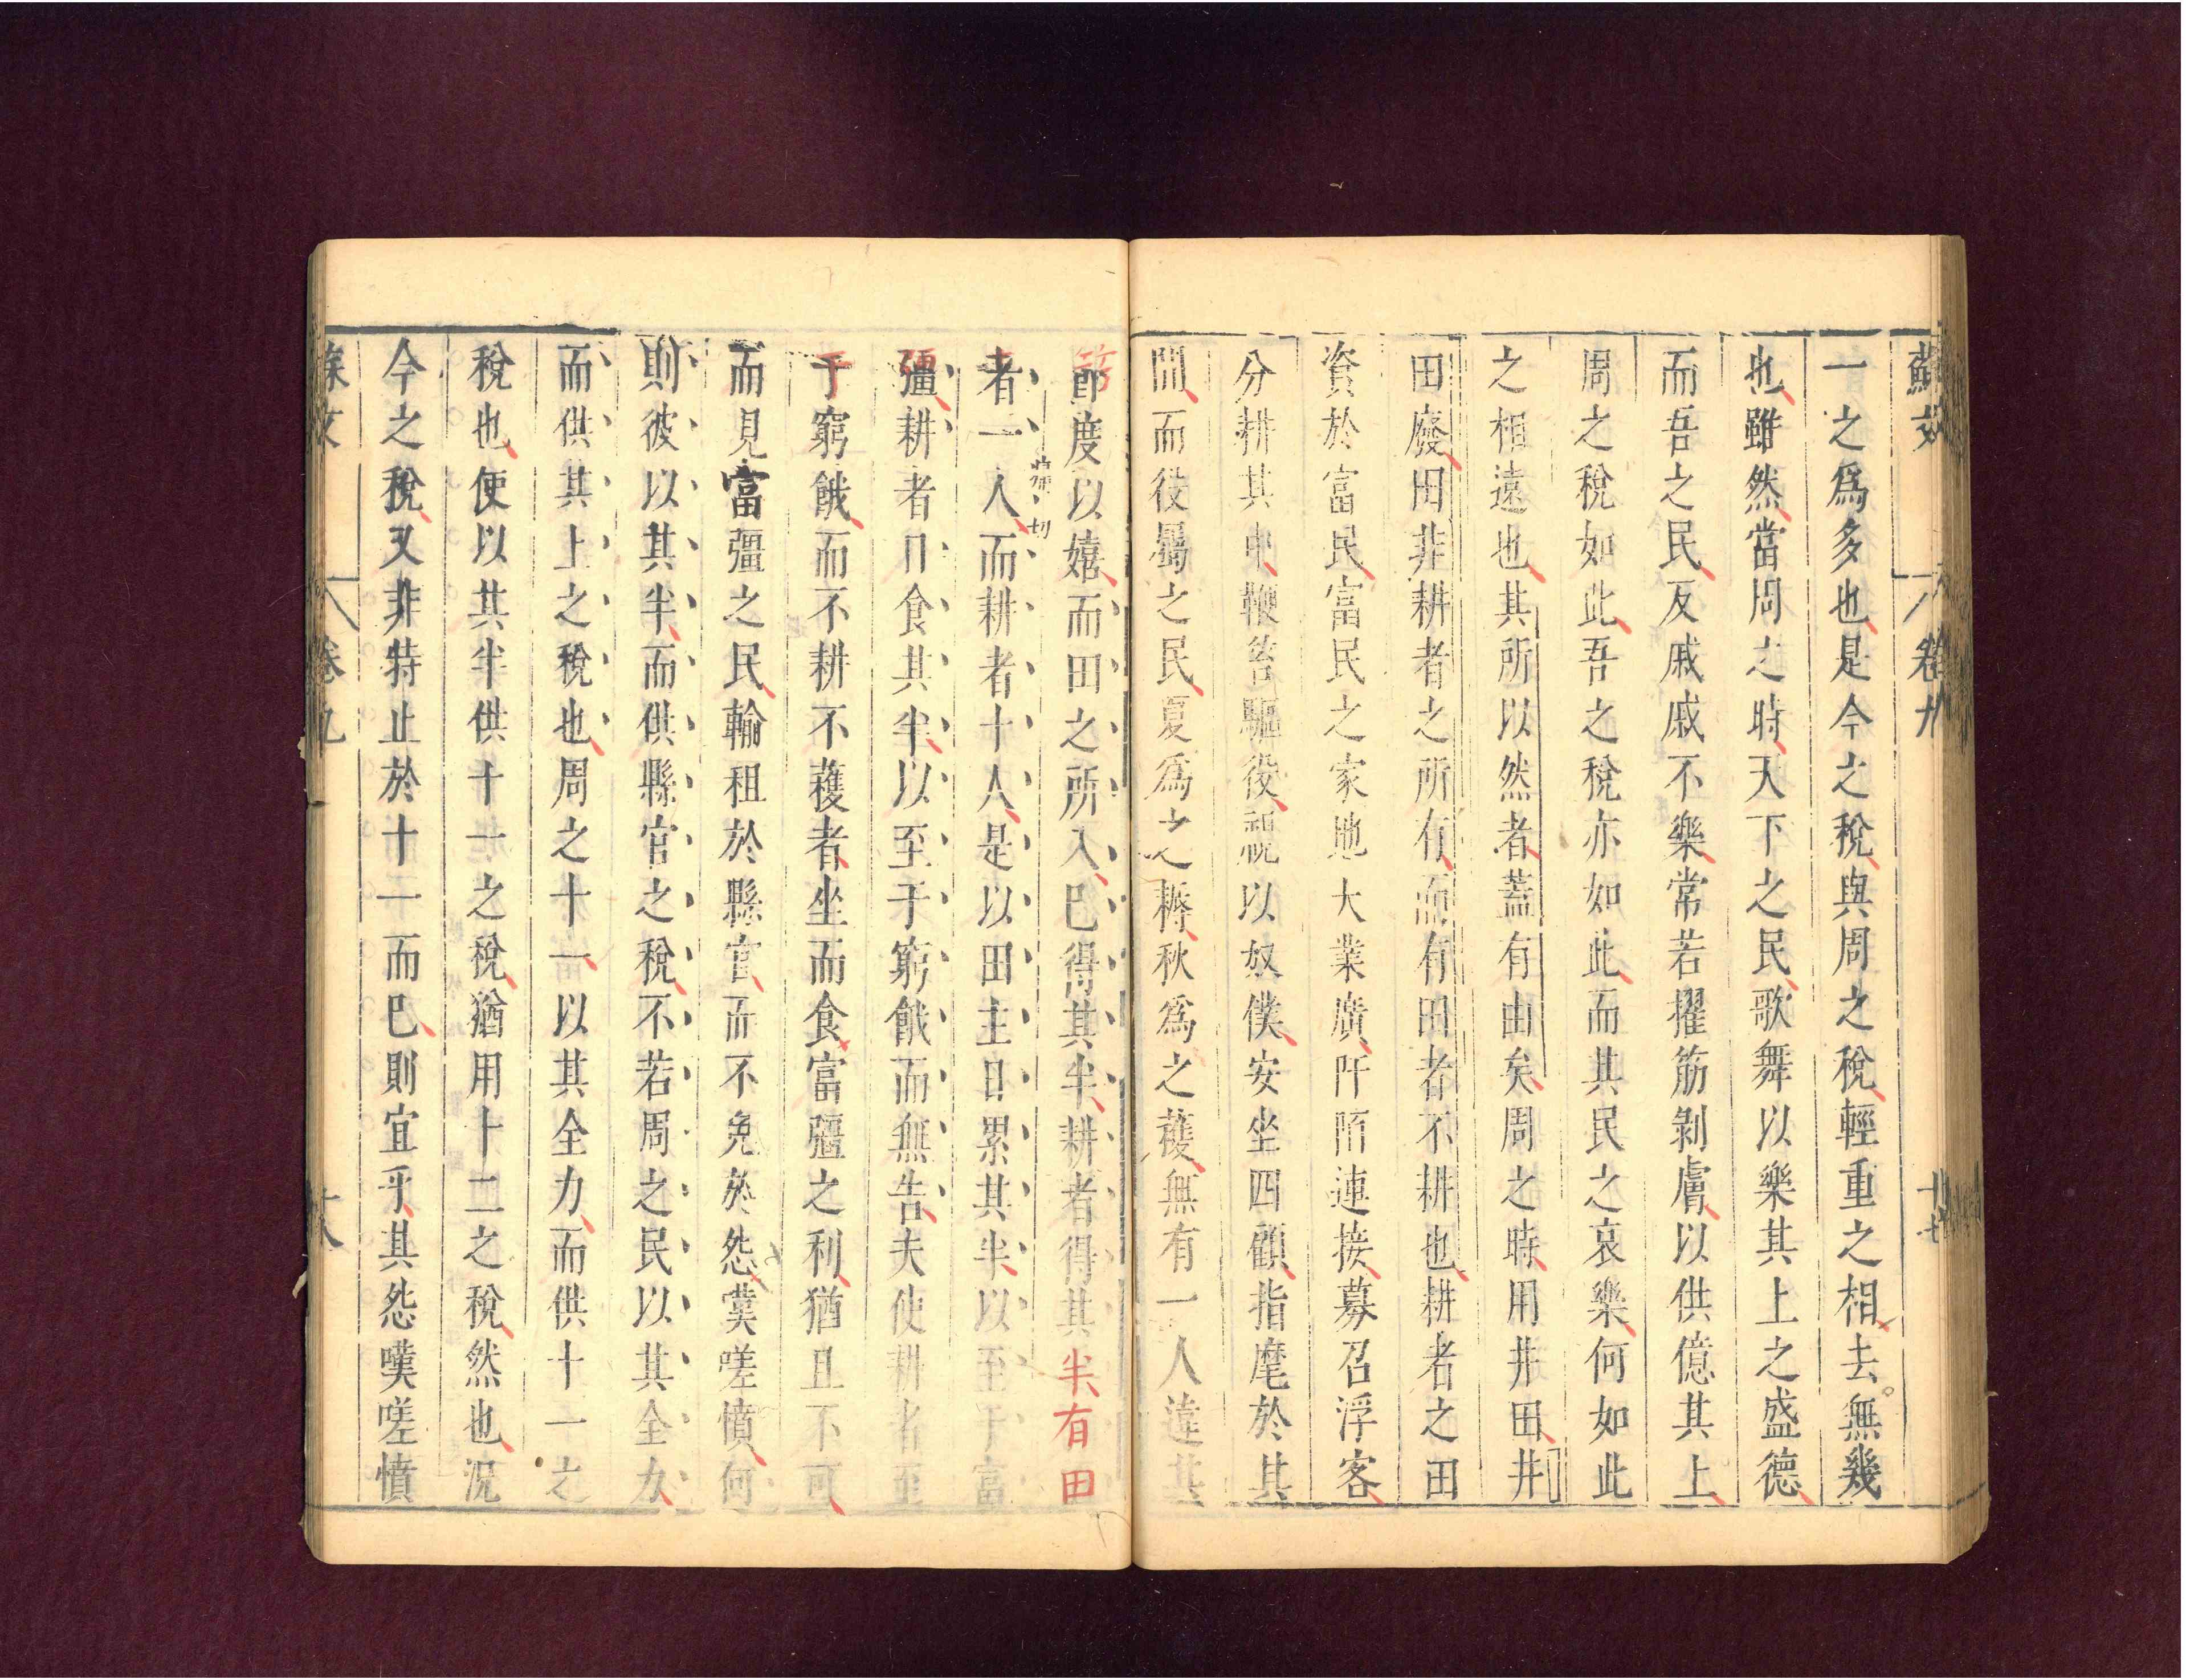 蘇文 卷九 十七
一之爲多也是今之稅與周之稅輕重之相去無幾
也雖然當周之時天下之民歌舞以樂其上之盛德
而吾之民反戚戚不樂常若擢筋剝膚以供億其上
周之稅如此吾之稅亦如此而其民之哀樂何如此
之相遠也其所以然者蓋有由矣周之時用井田井
田廢田非耕者之所有而有田者不耕也耕者之田
資於富民富民之家地大業廣阡陌連接募召浮客
分耕其中鞭笞驅役視以奴僕安坐四顧指麾於其
間而役屬之民夏爲之耨秋爲之穫無有一人違其
節度以嬉而田之所入已得其半耕者得其半有田
者一人而耕者十人是以田主日累其半以至于富
彊耕者日食其半以至于窮餓而無告夫使耕者至
于窮餓而不耕不穫者坐而食富彊之利猶且不可
而見富彊之民輸租於縣官而不免於怨嘆嗟憤何
則彼以其半而供縣官之稅不若周之民以其全力
而供其上之稅也周之十一以其全力而供十一之
稅也使以其半供十一之稅猶用十二之稅然也況
今之稅又非特止於十一而已則宜乎其怨嘆嗟憤
蘇文 卷九 十八